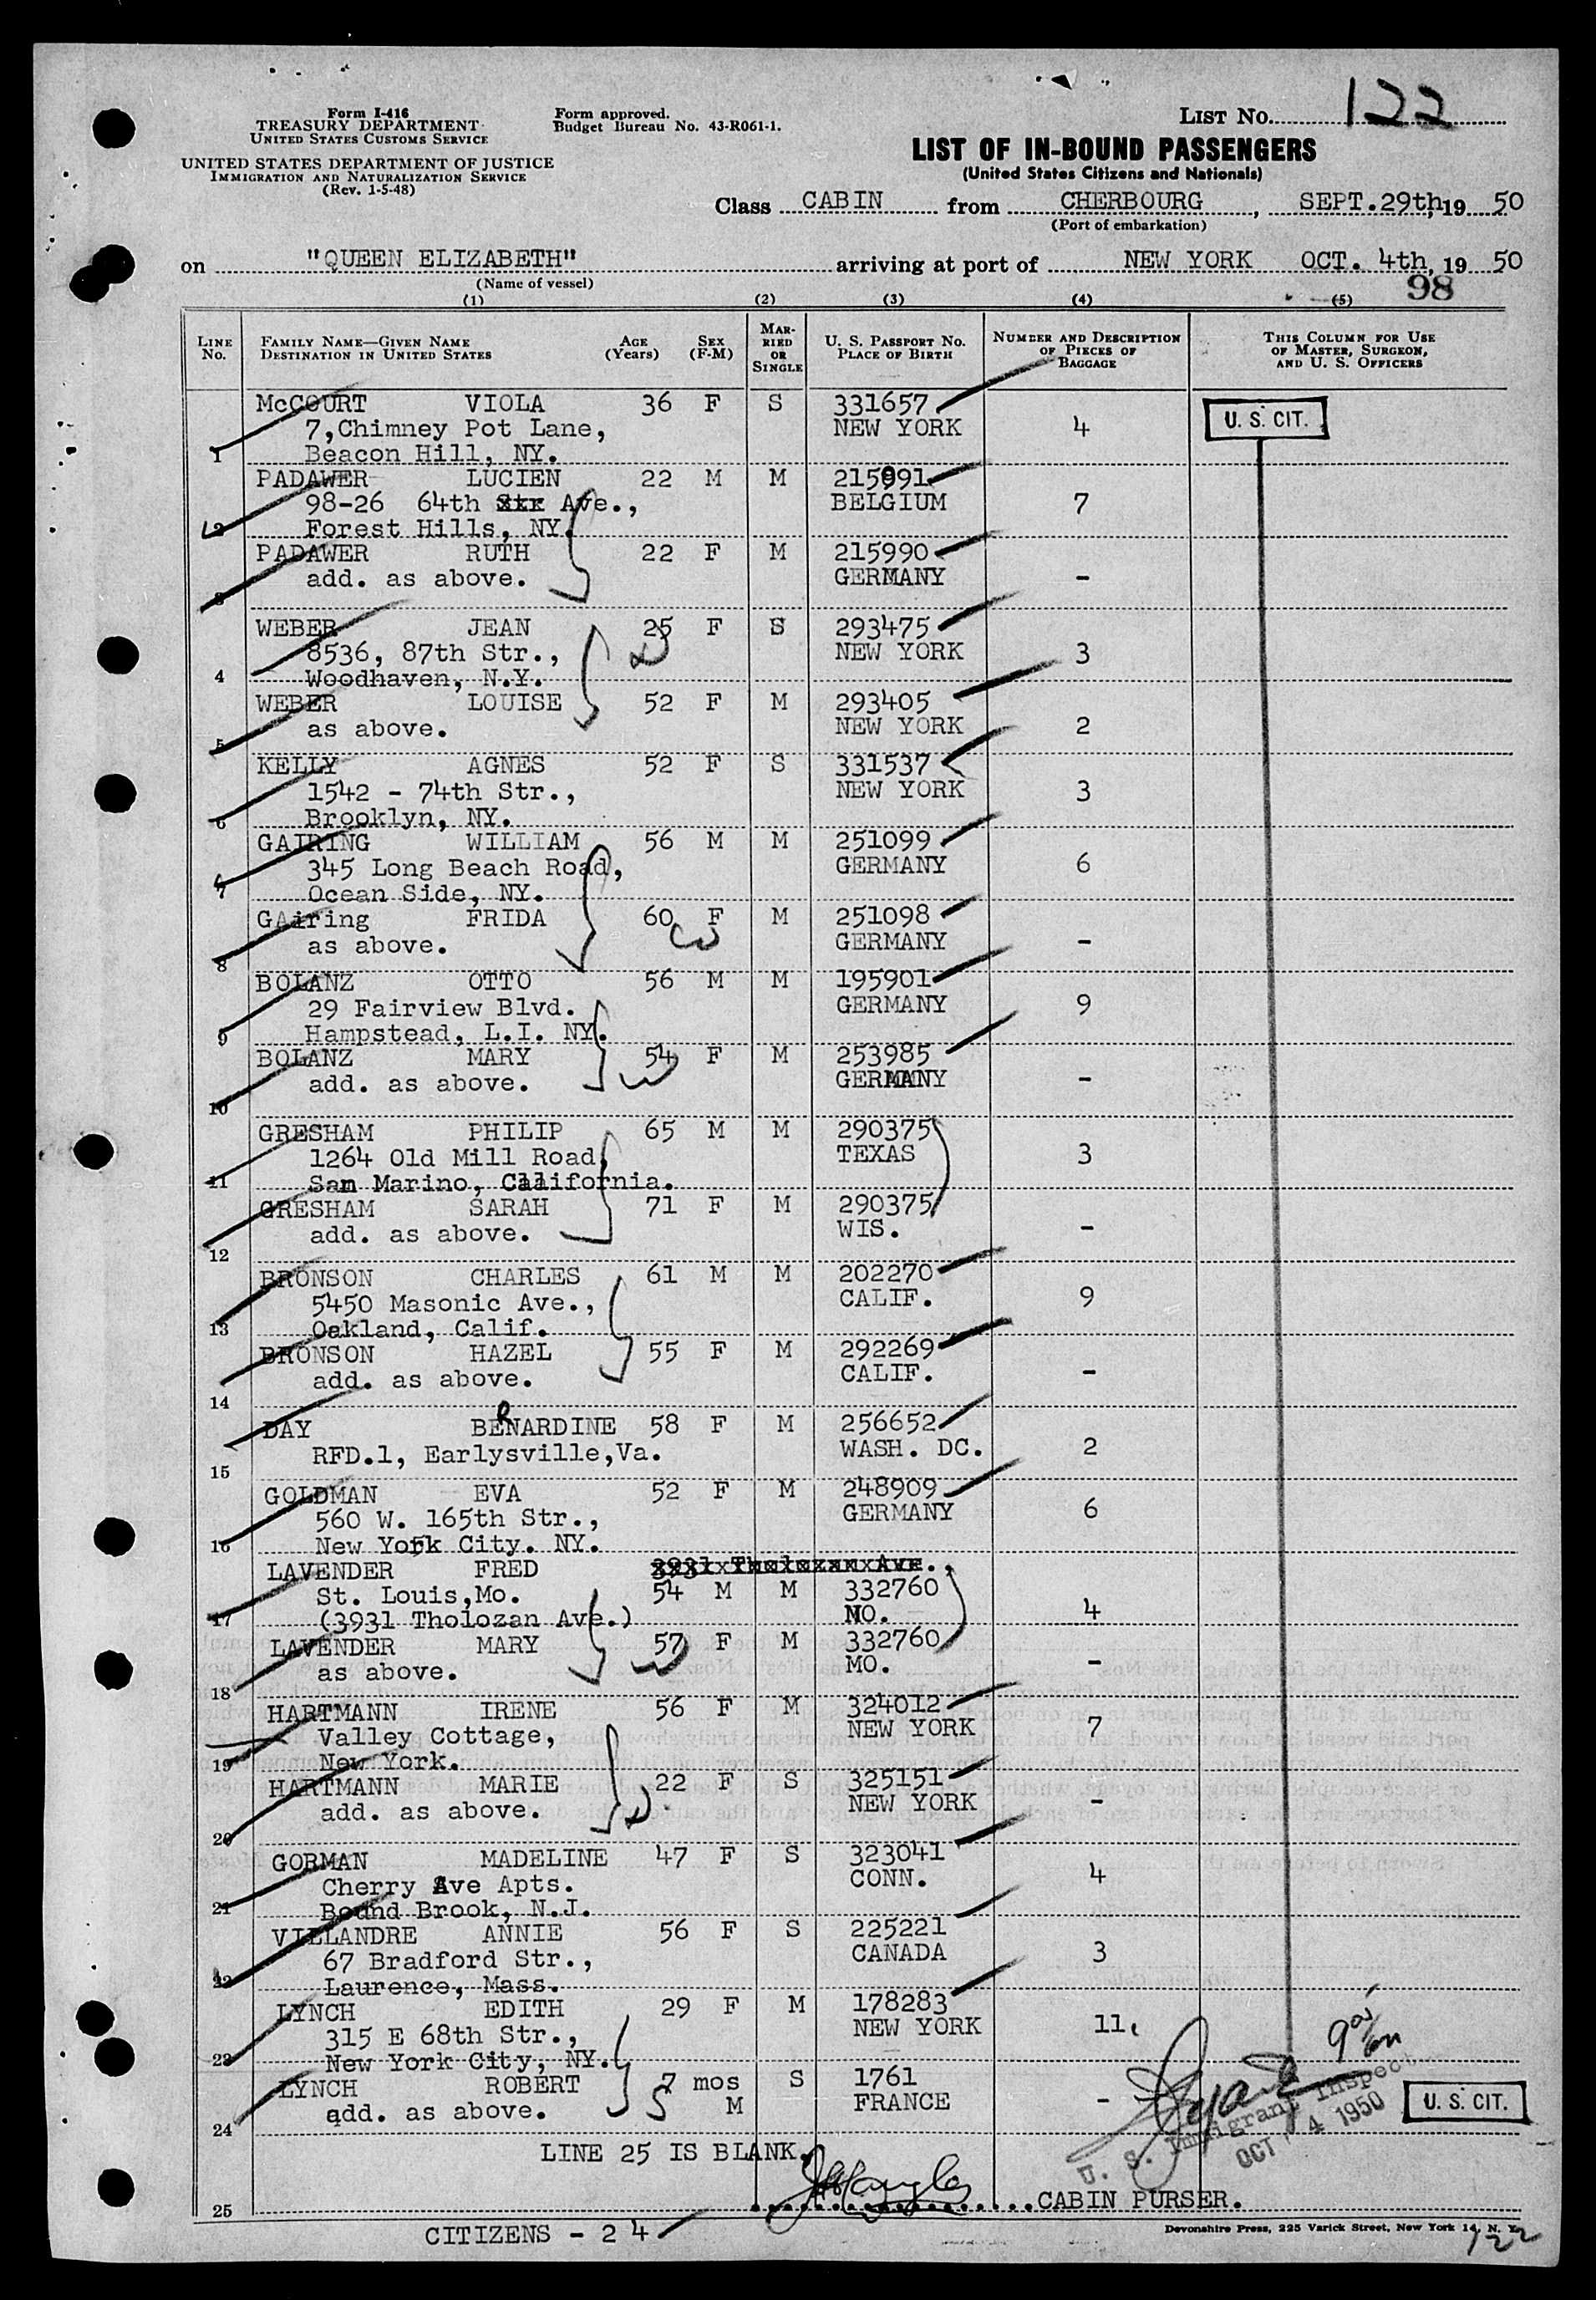 Form I-416
TREASURY DEPARTMENT
UNITED STATES CUSTOMS SERVICE
UNITED STATES DEPARTMENT OF JUSTICE
IMMIGRATION AND NATURALIZATION SERVICE
(Rev. 1-5-48)
Form approved.
Budget Bureau No. 43-R061-1.
LIST NO. 122
LIST OF IN-BOUND PASSENGERS
(United States Citizens and Nationals)
Class CABIN from CHERBOURG, SEPT.29th, 19 50
(Port of embarkation)
on "QUEEN ELIZABETH" arriving at port of NEW YORK OCT. 4th, 19 50
(Name of vessel)
98
(1) (2) (3) (4) (5)
LINE NO.
FAMILY NAME—GIVEN NAME
DESTINATION IN UNITED STATES
AGE (Years)
SEX (F-M)
MARRIED OR SINGLE
U. S. PASSPORT NO.
PLACE OF BIRTH
NUMBER AND DESCRIPTION OF PIECES OF BAGGAGE
THIS COLUMN FOR USE OF MASTER, SURGEON, AND U. S. OFFICERS
McCOURT VIOLA 36 F S 331657
7,Chimney Pot Lane, NEW YORK 4 U. S. CIT.
1 Beacon Hill, NY.
PADAWER LUCIEN 22 M M 215991
98-26 64th Str Ave., BELGIUM 7
2 Forest Hills, NY.
PADAWER RUTH 22 F M 215990
add. as above. GERMANY -
3
WEBER JEAN 25 F S 293475
8536, 87th Str., NEW YORK 3
4 Woodhaven, N.Y.
WEBER LOUISE 52 F M 293405
as above. NEW YORK 2
5
KELLY AGNES 52 F S 331537
1542 - 74th Str., NEW YORK 3
6 Brooklyn, NY.
GAIRING WILLIAM 56 M M 251099
345 Long Beach Road, GERMANY 6
7 Ocean Side, NY.
GAiring FRIDA 60 F M 251098
as above. GERMANY -
8
BOLANZ OTTO 56 M M 195901
29 Fairview Blvd. GERMANY 9
9 Hampstead, L.I. NY.
BOLANZ MARY 54 F M 253985
add. as above. GERMANY -
10
GRESHAM PHILIP 65 M M 290375
1264 Old Mill Road, TEXAS 3
11 San Marino, California.
GRESHAM SARAH 71 F M 290375
add. as above. WIS. -
12
BRONSON CHARLES 61 M M 202270
5450 Masonic Ave., CALIF. 9
13 Oakland, Calif.
BRONSON HAZEL 55 F M 292269
add. as above. CALIF. -
14
DAY BERNARDINE 58 F M 256652
RFD.1, Earlysville,Va. WASH. DC. 2
15
GOLDMAN EVA 52 F M 248909
560 W. 165th Str., GERMANY 6
16 New York City. NY.
LAVENDER FRED 3931 Tholozan Ave.,
St. Louis,Mo. 54 M M 332760
17 (3931 Tholozan Ave.) MO. 4
LAVENDER MARY 57 F M 332760
as above. MO. -
18
HARTMANN IRENE 56 F M 324012
Valley Cottage, NEW YORK 7
19 New York.
HARTMANN MARIE 22 F S 325151
add. as above. NEW YORK -
20
GORMAN MADELINE 47 F S 323041
Cherry Ave Apts. CONN. 4
21 Bound Brook, N.J.
VILLANDRE ANNIE 56 F S 225221
67 Bradford Str., CANADA 3
22 Laurence, Mass.
LYNCH EDITH 29 F M 178283
315 E 68th Str., NEW YORK 11
23 New York City, NY.
LYNCH ROBERT 7 mos S 1761
add. as above. M FRANCE -
24
U. S. Immigrant Inspect
OCT 4 1950
U. S. CIT.
LINE 25 IS BLANK.
25 CABIN PURSER.
CITIZENS - 24
Devonshire Press, 225 Varick Street, New York 14, N. Y.
122